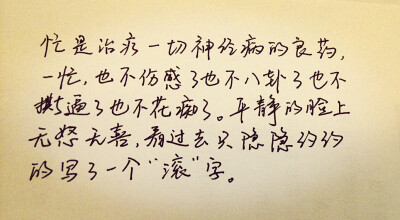 忙是治疗一切神经病的良药,
一忙,也不伤感了也不八卦了也不
逼了也不花痴了。平静的脸上
无怒无喜,看过去只隐隐约约
的写了一个“滚”字。